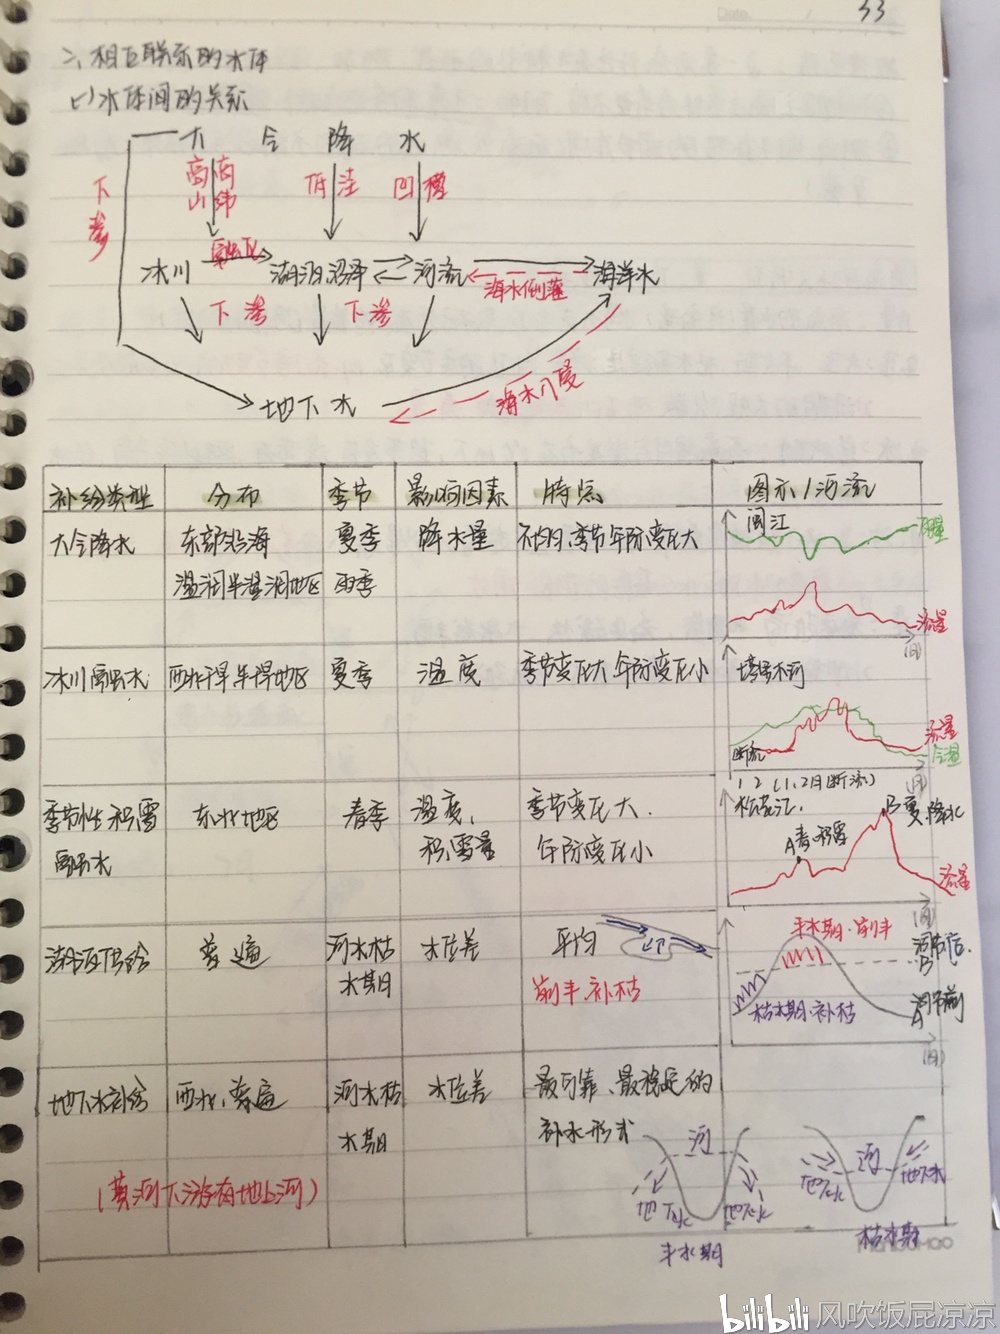 33
二、相互联系的水体
(一)水体间的关系
大 气 降 水
下渗
高山 高纬
低洼
凹槽
融化
冰川 湖泊沼泽 河流 海洋水
海水倒灌
下渗 下渗
地下水
海水入侵
补给类型 分布 季节 影响因素 特点 图示/河流
大气降水 东部沿海 夏季 降水量 不均,季节年际变化大 闽江
湿润半湿润地区 雨季
雨量
流量
(月)
冰川融水 西北干旱半旱地区 夏季 温度 季节变化大 年际变化小 塔里木河
流量
气温
断流
(月)
1 2 (1、2月断流)
季节性积雪 东北地区 春季 温度, 季节变化大, 松花江
融水 积雪量 年际变化小
A春.积雪
B夏.降水
流量
(月)
湖泊供给 普遍 河水枯 水位差 平均
水期 削丰.补枯
丰水期.削丰
调节后
B
枯水期.补枯
调节前
A
(月)
地下水补给 西北、普遍 河水枯 水位差 最可靠、最稳定的
水期 补水形式
(黄河下游有地上河)
河
地下水 地下水
丰水期
河
地下水 地下水
枯水期
bilibili 风吹饭屁凉凉